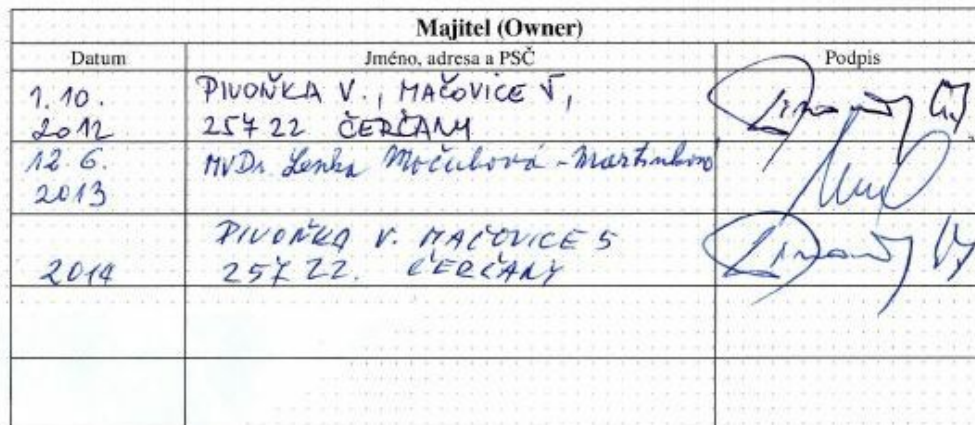 Majitel (Owner)
Datum Jméno, adresa a PSČ Podpis
1. 10. PIVOŇKA V., MAČOVICE 5,
2012 257 22 ČERČANY
12. 6. MVDr. Lenka Močubová - Martinkova
2013
PIVOŇKA V. MAČOVICE 5
2014 257 22. ČERČANY